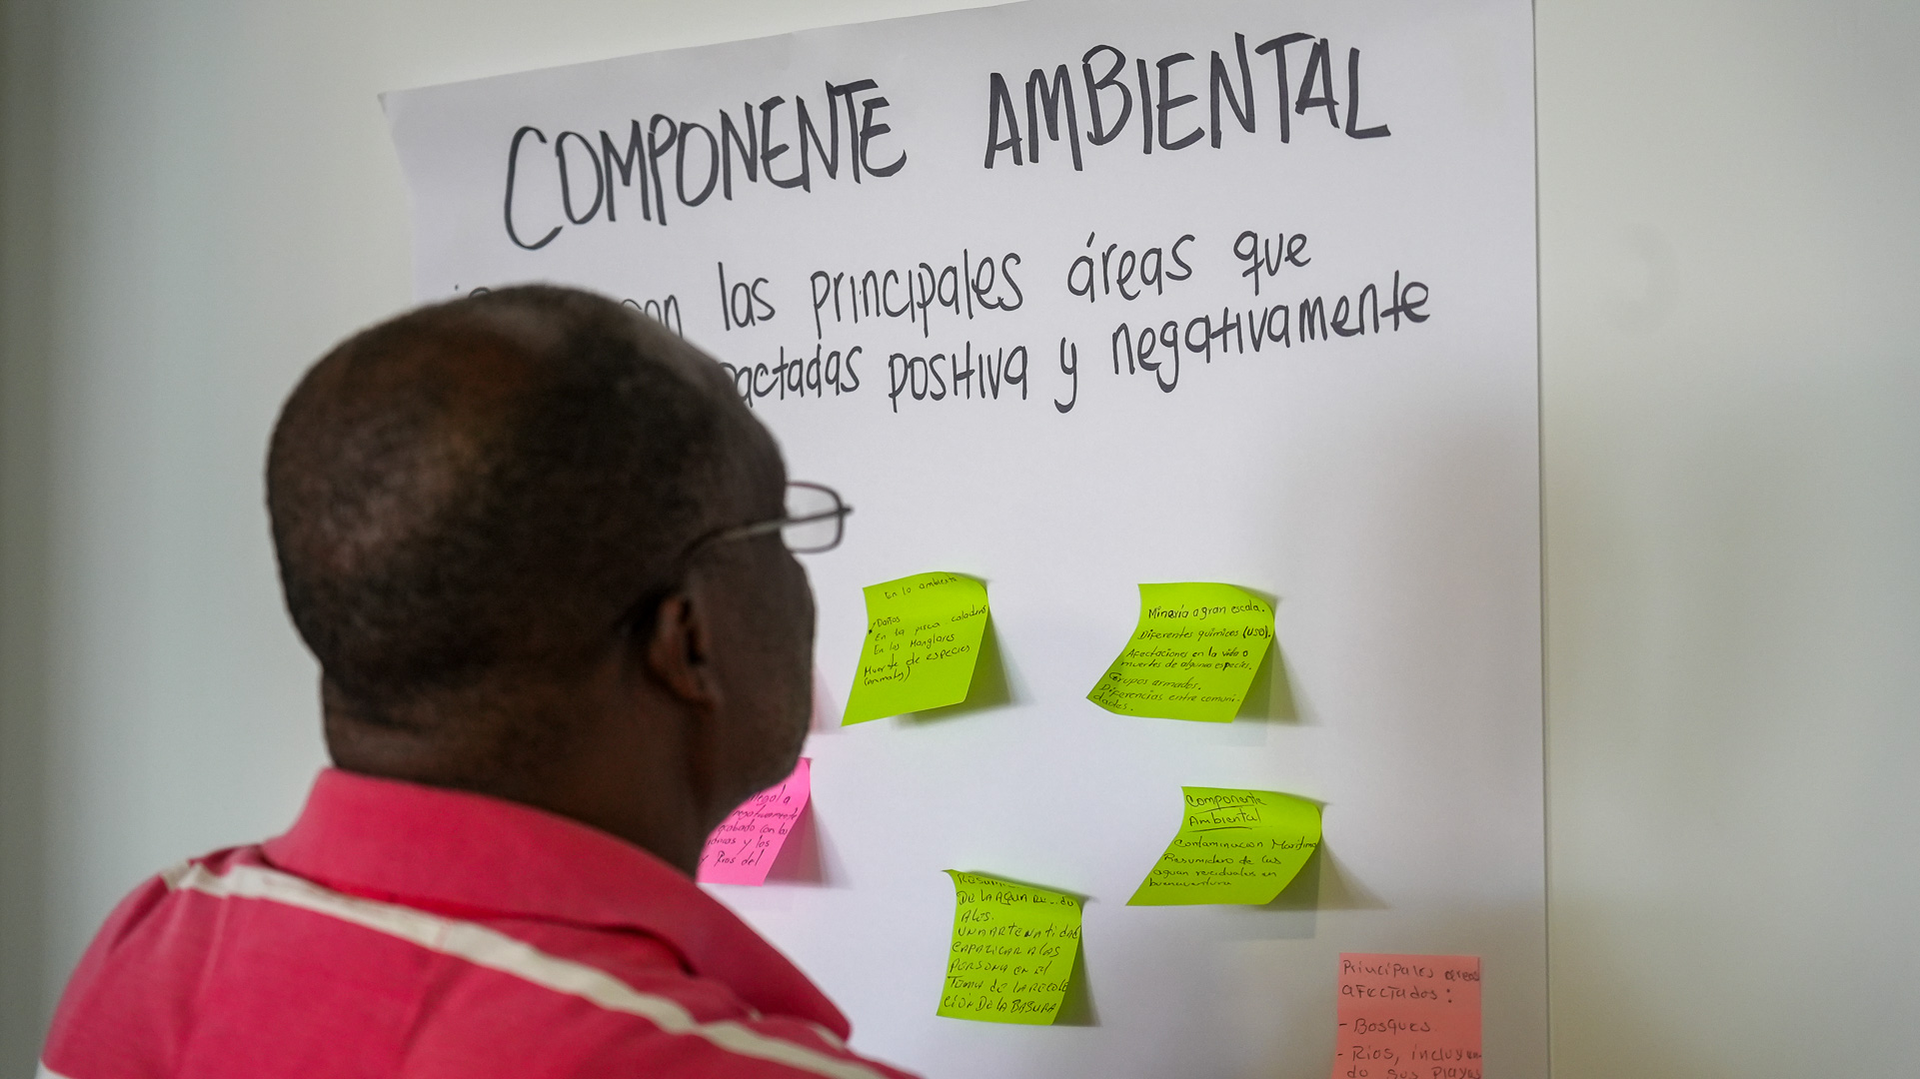 COMPONENTE AMBIENTAL
las principales áreas que
positiva y negativamente
En lo ambiental
Daños
En la pesca
En los Manglares
Muerte de especies
Minería a gran escala.
Diferentes químicos (uso).
Afectaciones en la vida o
muertes de algunas especies.
Grupos armados.
Diferencias entre comuni-
dades.
y los
Rios del
Componente
Ambiental
Contaminacion Maritima
Resumidero de las
aguas residuales en
buenaventura
DE LA AGUA
PERSONA EN El
TEMA DE LA RECOLE
CIÓN DE LA BASURA
Principales areas
afectados:
- Bosques
- Rios, incluyen-
do sus Playas